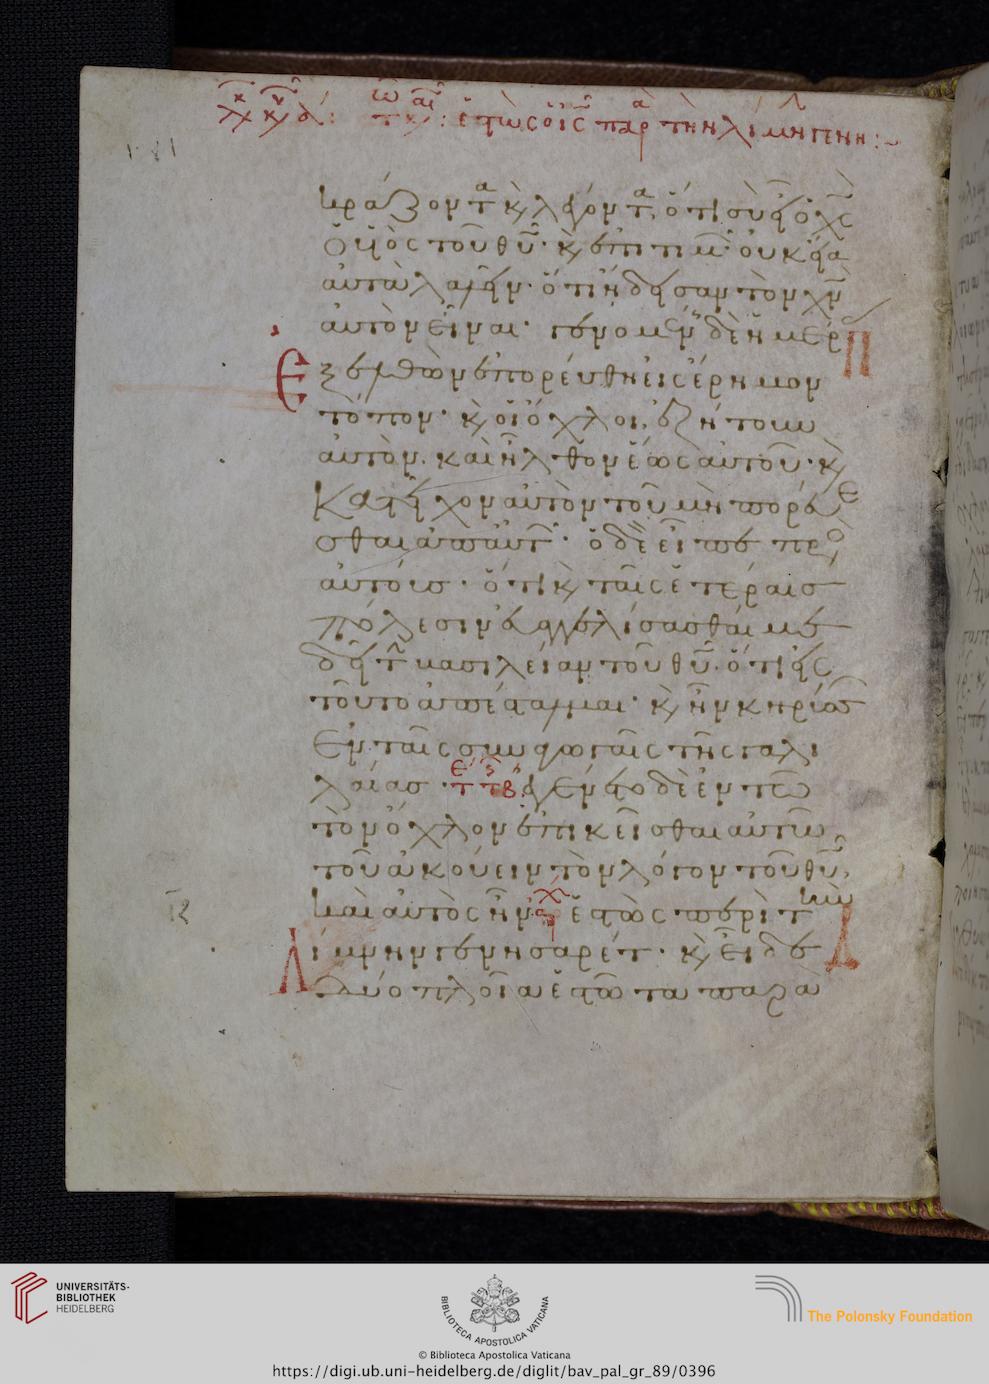 κράζοντα κ λέγοντα, ὅτι σὺ εἶ ὁ χς
Ὁ υἱὸς τοῦ θυ· κ ἐπιτιμ οὐκ εἴα
αὐτὰ λαλεῖν· ὅτι ἤδεισαν τὸν χν
αὐτὸν εἶναι· γενομένης δὲ ἡμέρ
Ἐξελθὼν ἐπορεύθη εἰς ἔρημον
τόπον· κ οἱ ὄχλοι ἐζήτουν
αὐτὸν. καὶ ἦλθον ἕως αὐτοῦ· κ
Κατεῖχον αὐτὸν τοῦ μὴ πορεύε
σθαι ἀπ αὐτ· ὁ δὲ εἶπε πρὸ
αὐτούς· ὅτι κ ταῖς ἑτέραις
πόλεσιν εὐαγγελίσασθαί με
δεῖ τ βασιλείαν τοῦ θυ· ὅτι εἰς
τοῦτο ἀπέσταλμαι· κ ἦν κηρύσσ
Ἐν ταῖς συναγωγαῖς τῆς γαλι
λαίας· ἐγένετο δὲ ἐν τῶ
τὸν ὄχλον ἐπικεῖσθαι αὐτῶ
τοῦ ἀκούειν τὸν λόγον τοῦ θυ,
καὶ αὐτὸς ἦν ἑστὼς παρὰ τ
λίμνην γεννησαρέτ· κ εἶδε
δύο πλοῖα ἑστῶτα παρὰ
UNIVERSITÄTS-
BIBLIOTHEK
HEIDELBERG
BIBLIOTECA APOSTOLICA VATICANA
© Biblioteca Apostolica Vaticana
The Polonsky Foundation
https://digi.ub.uni-heidelberg.de/diglit/bav_pal_gr_89/0396